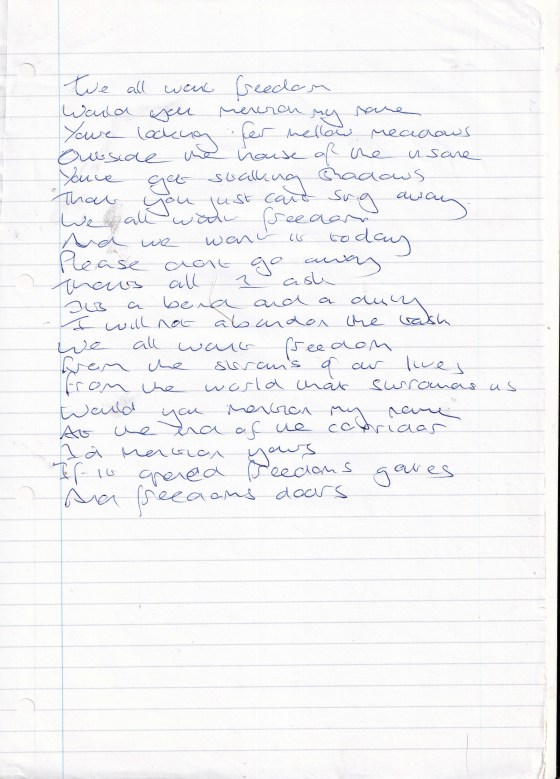 We all want freedom
Would you mention my name
Youre looking for mellow meadows
Outside the house of the insane
Youve got stalking shadows
That you just cant sing away
We all want freedom
And we want it today
Please dont go away
Thats all I ask
Its a bond and a duty
I will not abandon the task
We all want freedom
From the strains of our lives
From the world that surrounds us
Would you mention my name
At the end of the corridor
Id mention yours
If it opened freedoms gates
And freedoms doors